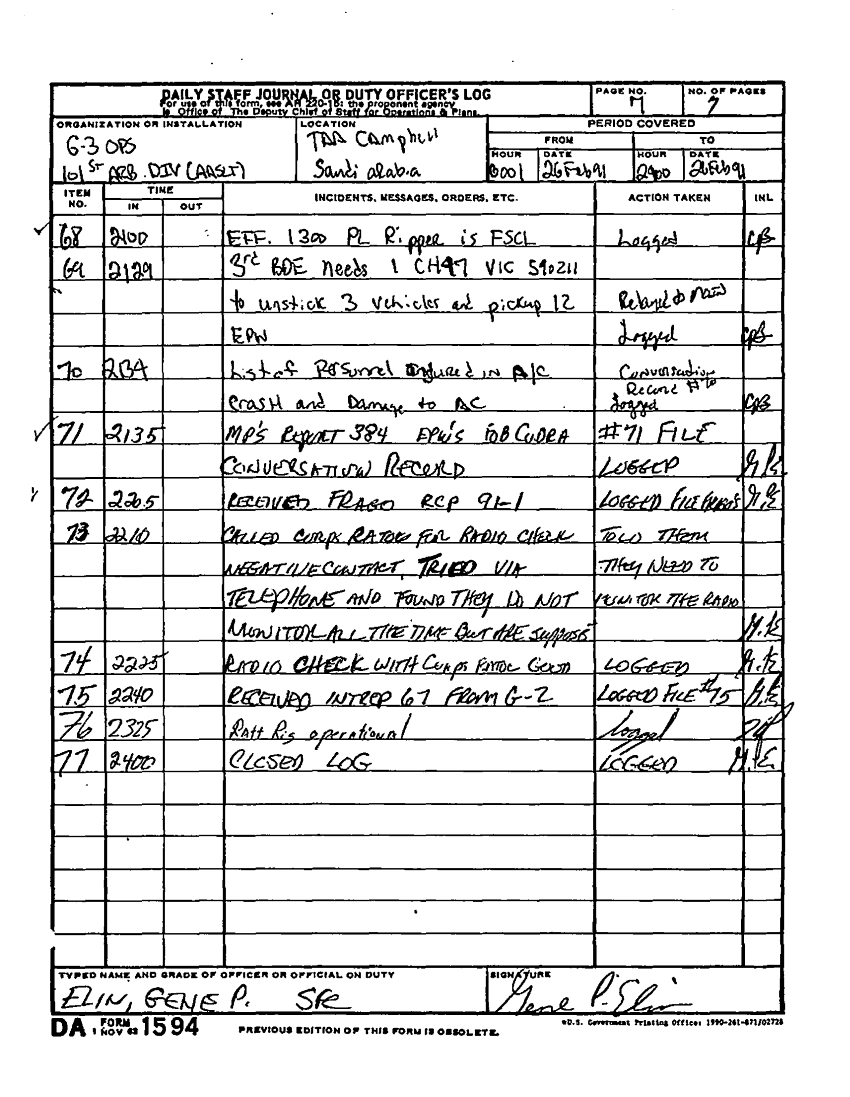 DAILY STAFF JOURNAL OR DUTY OFFICER'S LOG
For use of this form, see AR 220-15; the proponent agency
is Office of The Deputy Chief of Staff for Operations & Plans.
PAGE NO.
7
NO. OF PAGES
7
ORGANIZATION OR INSTALLATION
G-3 OPS
101ST ARB. DIV (AASLT)
LOCATION
TAA Campbell
Saudi arabia
PERIOD COVERED
FROM
TO
HOUR
0001
DATE
26Feb91
HOUR
2400
DATE
26Feb91
ITEM NO.
TIME
IN
OUT
INCIDENTS, MESSAGES, ORDERS, ETC.
ACTION TAKEN
INL
68 2100 EFF. 1300 PL Ripper is FSCL Logged CPB
69 2129 3rd BDE needs 1 CH47 VIC 590211
to unstick 3 vehicles and pickup 12 Relayed to Main
EPW Logged CPB
70 List of Personnel injured in A/C Conversation
Record #70
crash and Damage to AC Logged CPB
71 2135 MP'S REPORT 384 EPW'S FOB COBRA #71 FILE
CONVERSATION RECORD LOGGED G.E
72 2205 RECEIVED FRAGO RCP 91-1 LOGGED FILE FRAGO'S G.E
73 2210 CALLED CORPS RATOC FOR RADIO CHECK TOLD THEM
NEGATIVE CONTACT, TRIED VIA THEY NEED TO
TELEPHONE AND FOUND THEY DO NOT MONITOR THE RADIO
MONITOR ALL THE TIME BUT ARE SUPPOSE G.E
74 2225 RADIO CHECK WITH CORPS RATOC GOOD LOGGED G.E
75 2240 RECEIVED INTREP 67 FROM G-2 LOGGED FILE #75 G.E
76 2325 Ratt Rig operational Logged
77 2400 CLOSED LOG LOGGED G.E
TYPED NAME AND GRADE OF OFFICER OR OFFICIAL ON DUTY
ELIN, GENE P. SFC
SIGNATURE
Gene P. Elin
DA FORM 1 NOV 62 1594
PREVIOUS EDITION OF THIS FORM IS OBSOLETE.
*U.S. Government Printing Office: 1990-261-871/02728